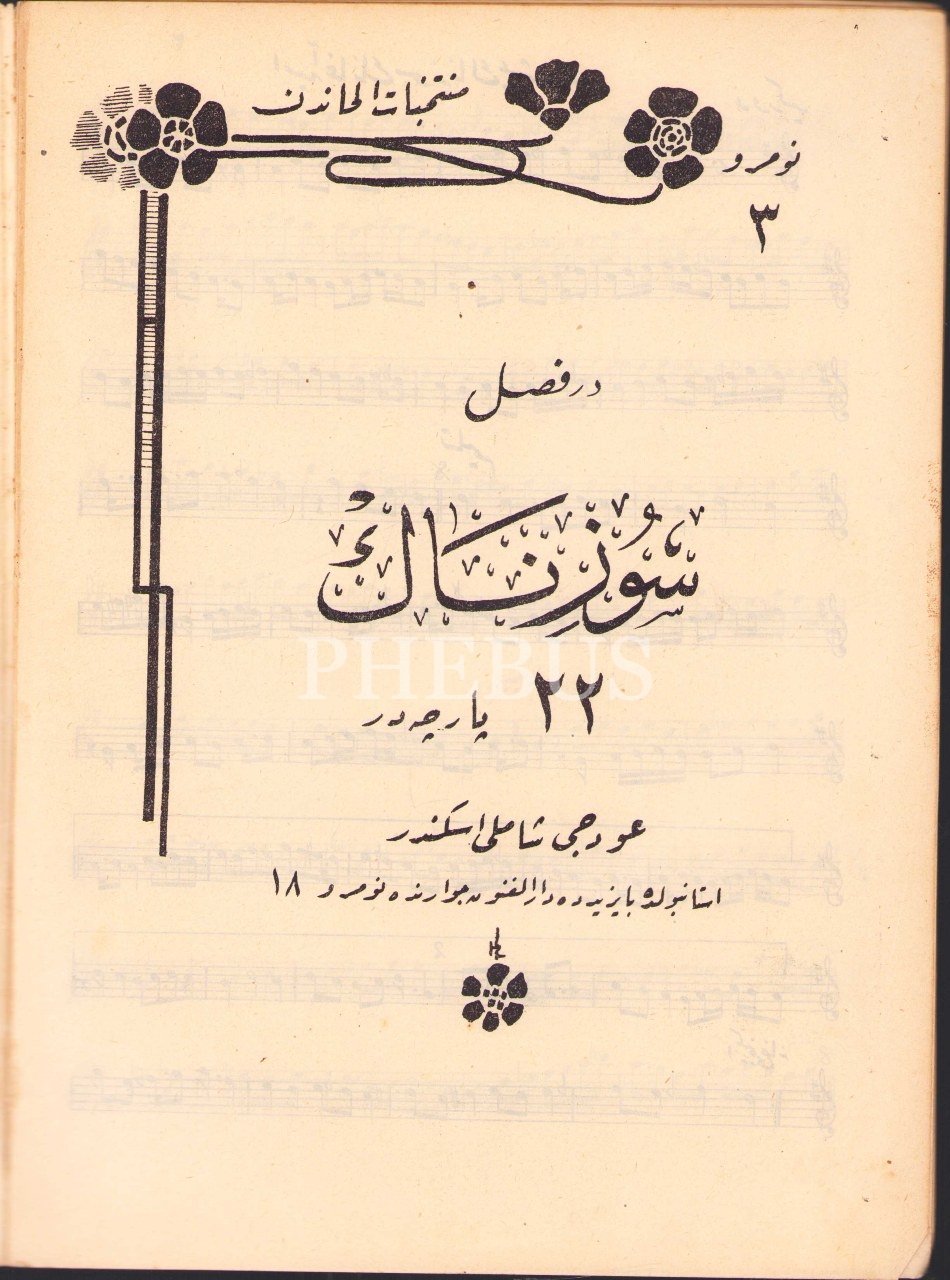 منتخبات الحاندن
نومرو
٣
در فصل
سُوزِنَاكْ
٢٢ پارچه در
عودجی شاملی اسكندر
استانبولده بایزیده دارالفنون جوارنده نومرو ١٨
PHEBUS